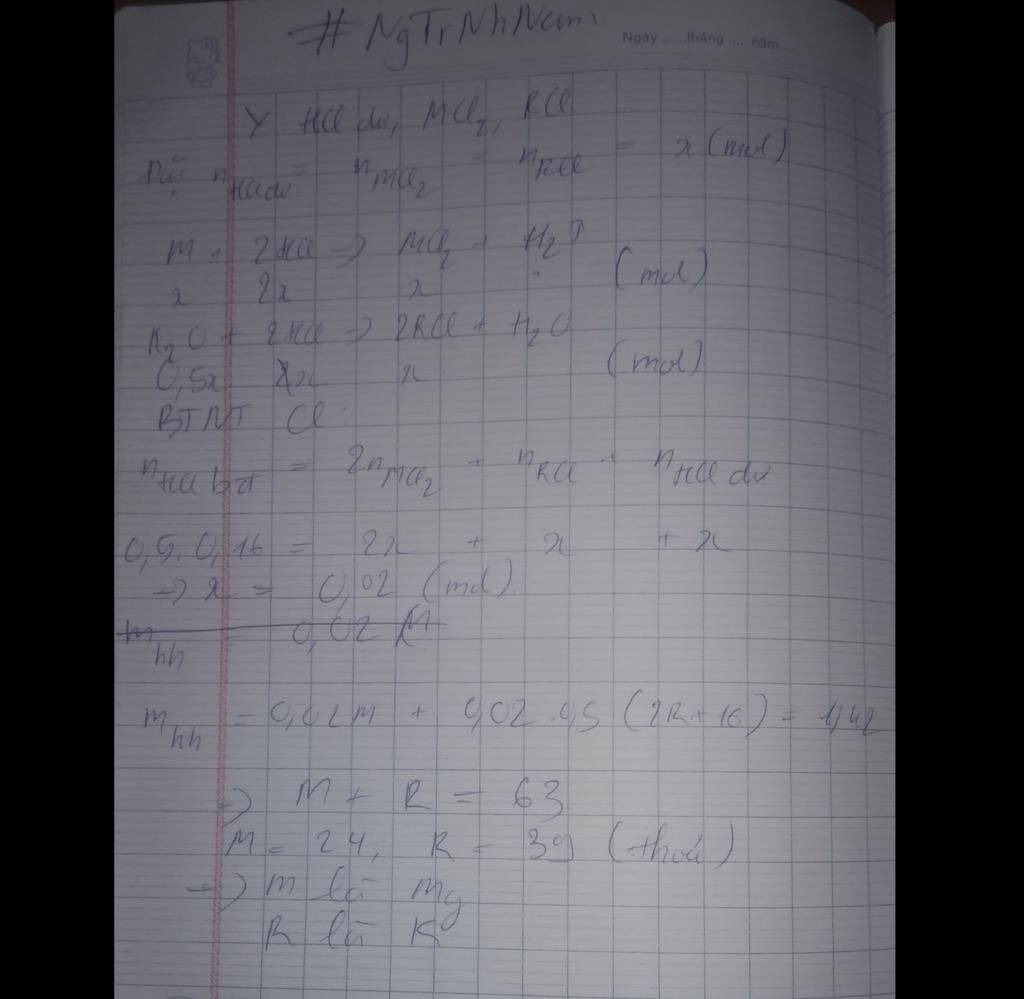 #NgTrNhNam
Ngày ......tháng ......năm......
Y HCl dư, MCl₂, RCl
Đặt nHCl dư = nMCl₂ = nRCl = x (mol)
M + 2HCl → MCl₂ + H₂↑
x 2x x (mol)
R₂O + 2HCl → 2RCl + H₂O
0,5x x x (mol)
BTNT Cl
nHCl bđ = 2nMCl₂ + nRCl + nHCl dư
0,5.0,16 = 2x + x + x
→ x = 0,02 (mol)
mhh = 0,02 M
mhh = 0,02M + 0,02.0,5 (2R+16) = 1,42
→ M + R = 63
M = 24, R = 39 (thoả)
→ M là Mg
R là K